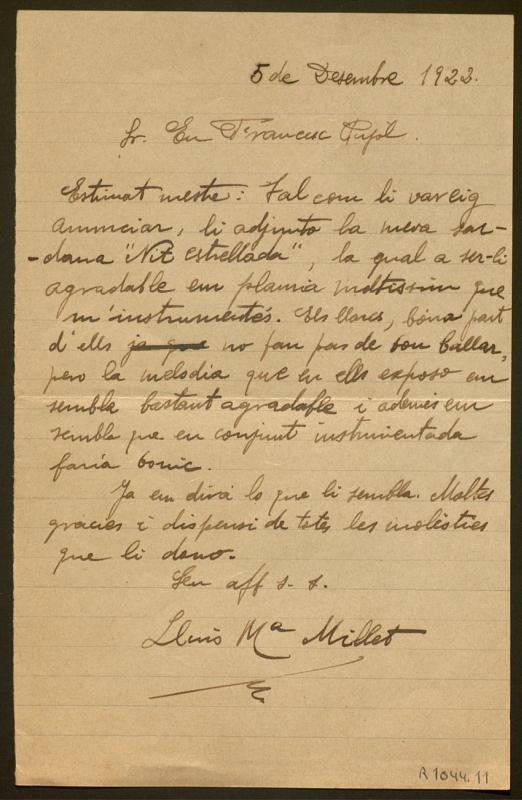 5 de Desembre 1923.
Sr. En Francesc Pujol.
Estimat mestre: Tal com li vareig
anunciar, li adjunto la meva sar-
-dana "Nit estrellada", la qual a ser-li
agradable em plauria moltissim que
m'instrumentés. Els llarcs, bona part
d'ells ja que no fan pas de bon ballar,
pero la melodia que en ells exposo em
sembla bastant agradable i ademés em
sembla que en conjunt instrumentada
faría bonic.
Ja em dirá lo que li sembla. Moltes
gracies i dispensi de totes les molèsties
que li dono.
Seu aff s. s.
Lluis Mª Millet
R 1044.11